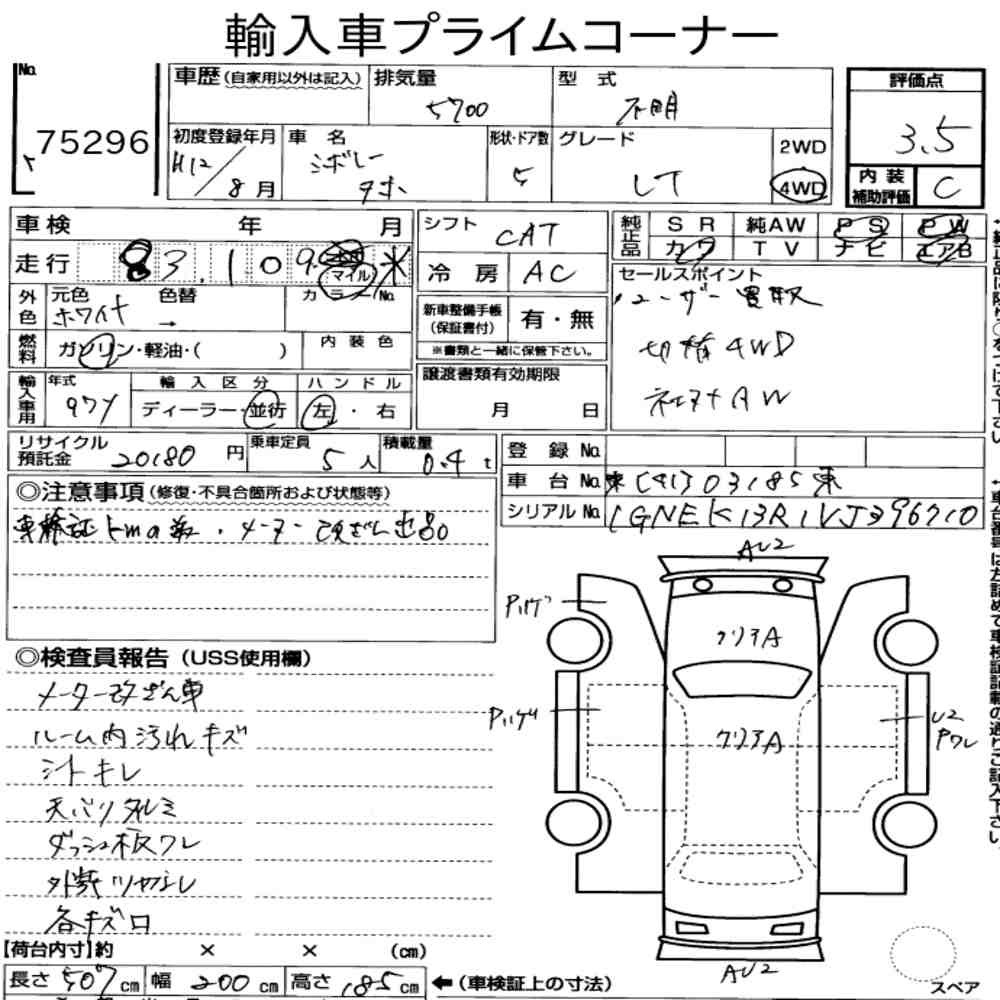 輸入車プライムコーナー
No. 75296
車歴 (自家用以外は記入)
排気量 5700
型式 不明
評価点 3.5
初度登録年月 H12/8月
車名 シボレー タホ
形状・ドア数 5
グレード LT
2WD
4WD
内装補助評価 C
車検 年 月
シフト CAT
純正品 SR 純AW PS PW
カワ TV ナビ エアB
走行 83,109 マイル ※
冷房 AC
セールスポイント
ユーザー買取
切替4WD
社外AW
外色 元色 ホワイト 色替 → カラーNo.
新車整備手帳 (保証書付) 有・無
※書類と一緒に保管下さい。
燃料 ガソリン・軽油・( ) 内装色
輸入車用 年式 97y 輸入区分 ディーラー・並行 ハンドル 左・右
譲渡書類有効期限
月 日
リサイクル預託金 20180円
乗車定員 5人
積載量 0.4t
登録No.
車台No. 東[41]03185東
シリアルNo. 1GNEK13R1VJ396710
◎注意事項 (修復・不具合箇所および状態等)
メーター改ざん出品
AU2
Pハゲ
クリアA
Pハゲ
クリアA
U2
Pワレ
AU2
スペア
◎検査員報告 (USS使用欄)
メーター改ざん車
ルーム内汚れキズ
シートキレ
天バリタルミ
ダッシュ板ワレ
外装ツヤナシ
各キズ
【荷台内寸】約 × × (cm)
長さ 507cm 幅 200cm 高さ 185cm ←(車検証上の寸法)